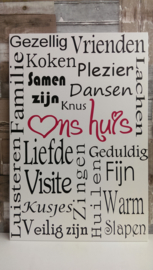 Gezellig
Vrienden
Koken
Plezier
Samen
zijn
Dansen
Knus
Familie
Lachen
ons huis
Liefde
Geduldig
Visite
Fijn
Zingen
Luisteren
Kusjes
Huilen
Warm
Veilig zijn
Slapen